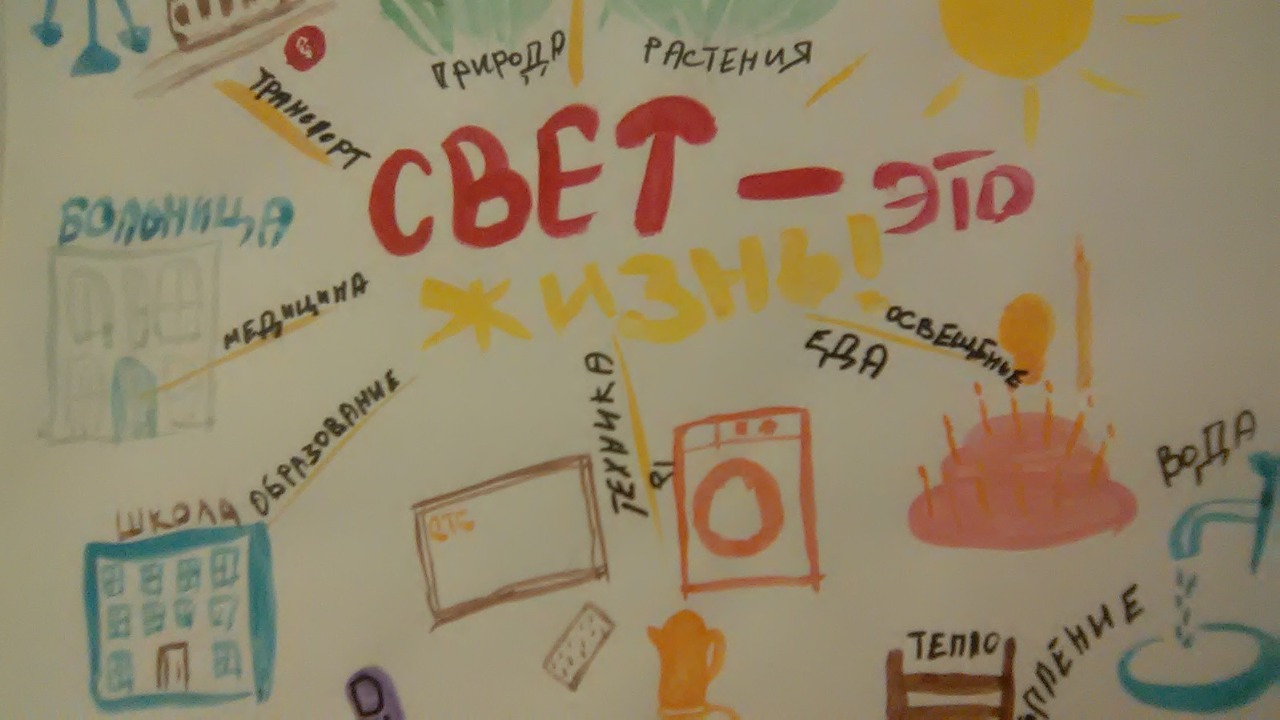 ПРИРОДА
РАСТЕНИЯ
ТРАНСПОРТ
СВЕТ – ЭТО
ЖИЗНЬ!
БОЛЬНИЦА
МЕДИЦИНА
ОСВЕЩЕНИЕ
ЕДА
ТЕХНИКА
ОБРАЗОВАНИЕ
ШКОЛА
СТС
ВОДА
ТЕПЛО